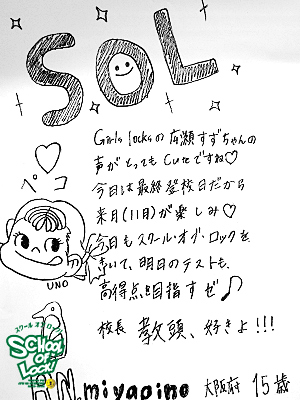 SOL
Girls locksの広瀬すずちゃんの
声がとってもCuteですね♡
今日は最終登校日だから
来月(11月)が楽しみ♡
今日もスクール・オブ・ロックを
きいて、明日のテストも
高得点を目指すぜ♪
校長 教頭、好きよ!!!
ペコ
UNO
スクール オブ ロック
SCHOOL OF LOCK!
R.N. miyapino 大阪府 15歳